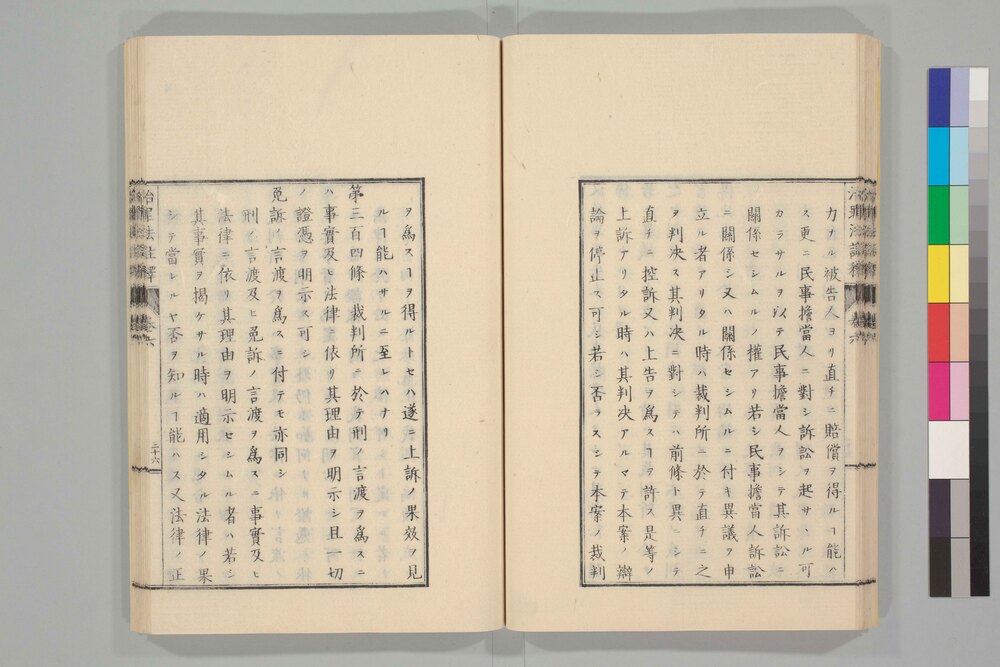 力ナル被告人ヨリ直チニ賠償ヲ得ルヿ能ハ
ス更ニ民事擔當人ニ對シ訴訟ヲ起サヽル可
カラサルヲ以テ民事擔當人ヲシテ其訴訟ニ
關係セシムルノ權アリ若シ民事擔當人訴訟
ニ關係シ又ハ關係セシムルニ付キ異議ヲ申
立ル者アリタル時ハ裁判所ニ於テ直チニ之
ヲ判决ス其判决ニ對シテハ前條ト異ニシテ
直チニ控訴又ハ上告ヲ爲スヿヲ許ス是等ノ
上訴アリタル時ハ其判决アルマテ本案ノ辯
論ヲ停止ス可シ若シ否ラスシテ本案ノ裁判
ヲ爲スヿヲ得ルトセハ遂ニ上訴ノ果效ヲ見
ルヿ能ハサルニ至レハナリ
第三百四條 裁判所ニ於テ刑ノ言渡ヲ爲スニ
ハ事實及ヒ法律ニ依リ其理由ヲ明示シ且一切
ノ證憑ヲ明示ス可シ
免訴ノ言渡ヲ爲スニ付テモ亦同シ
刑ノ言渡及ヒ免訴ノ言渡ヲ爲スニ事實及ヒ
法律ニ依リ其理由ヲ明示セシムル者ハ若シ
其事實ヲ揭ケサル時ハ適用シタル法律ノ果
シテ當レルヤ否ヲ知ルヿ能ハス又法律ノ正
治罪法註釋 卷六
三十六